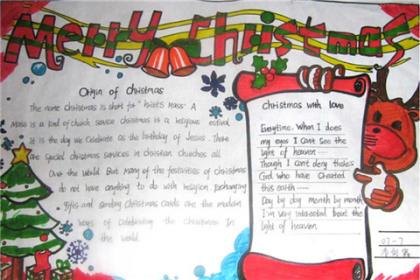 Merry Christmas
Origin of christmas
The name christmas is short for " hrist's mass". A
Mass is a kind of church service christmas is a religious festival
it is the day we celebrate as the birthday of Jesus. There
are special christmas services in christian churches all
Over the world. But many of the festivities of christmas
do not have anything to do with religion. Exchanging
gifts and sending Christmas cards are the modern
ways of celebrating the christmas in
the world.
christmas with love
Everytime. When I does
my eyes I can't see the
light of heaven
Though I can't deny thate's
God who have
this earth
Day by day month by month
I'm very interested the
light of heaven
07-7